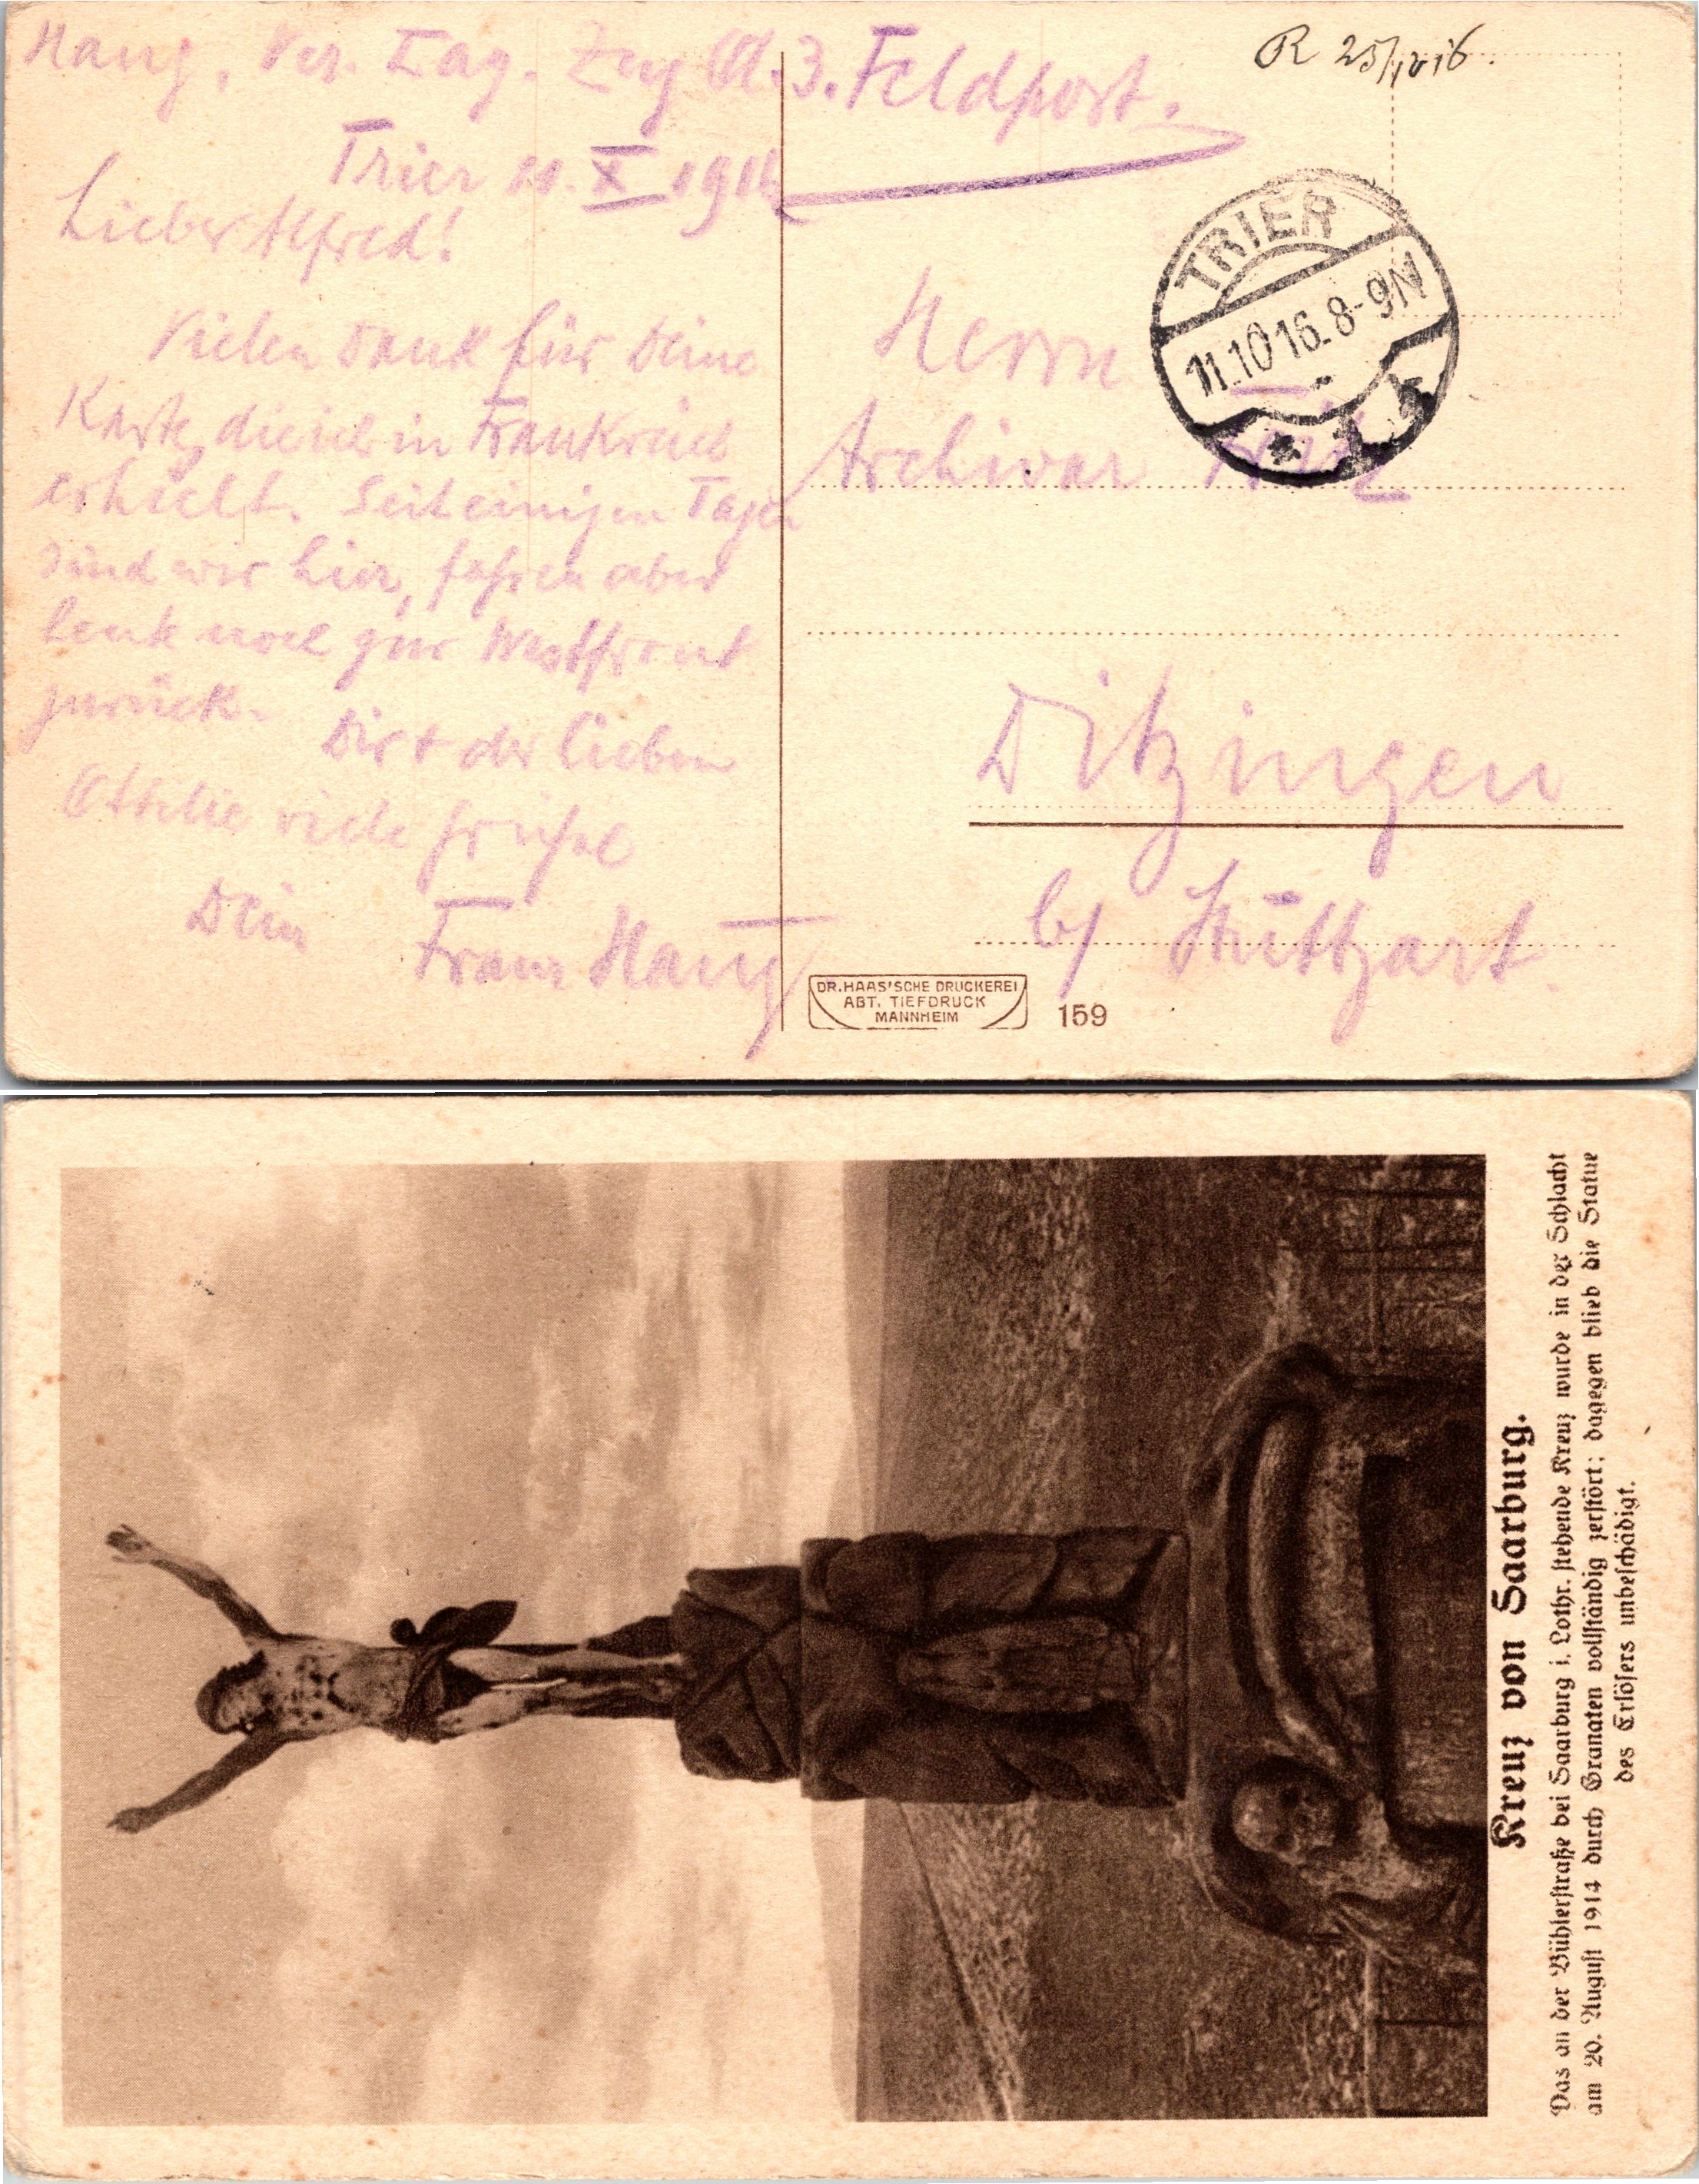 Haug, Ver. Laz. Zug A. 3. Feldpost.
R 25/IV 16.
Trier 11. X 1916
Lieber Alfred!
Vielen Dank für Deine
Karte, die ich in Frankreich
erhielt. Seit einigen Tagen
sind wir hier, fahren aber
heut noch zur Westfront
zurück. Dir + der lieben
Ottilie viele Grüße
Dein Franz Haug
TRIER
11.10 16. 8-9N
Herrn
Archivar
Ditzingen
b/ Stuttgart.
DR. HAAS'SCHE DRUCKEREI
ABT. TIEFDRUCK
MANNHEIM
159
Kreuz von Saarburg.
Das an der Bühlerstraße bei Saarburg i. Lothr. stehende Kreuz wurde in der Schlacht
am 20. August 1914 durch Granaten vollständig zerstört; dagegen blieb die Statue
des Erlösers unbeschädigt.